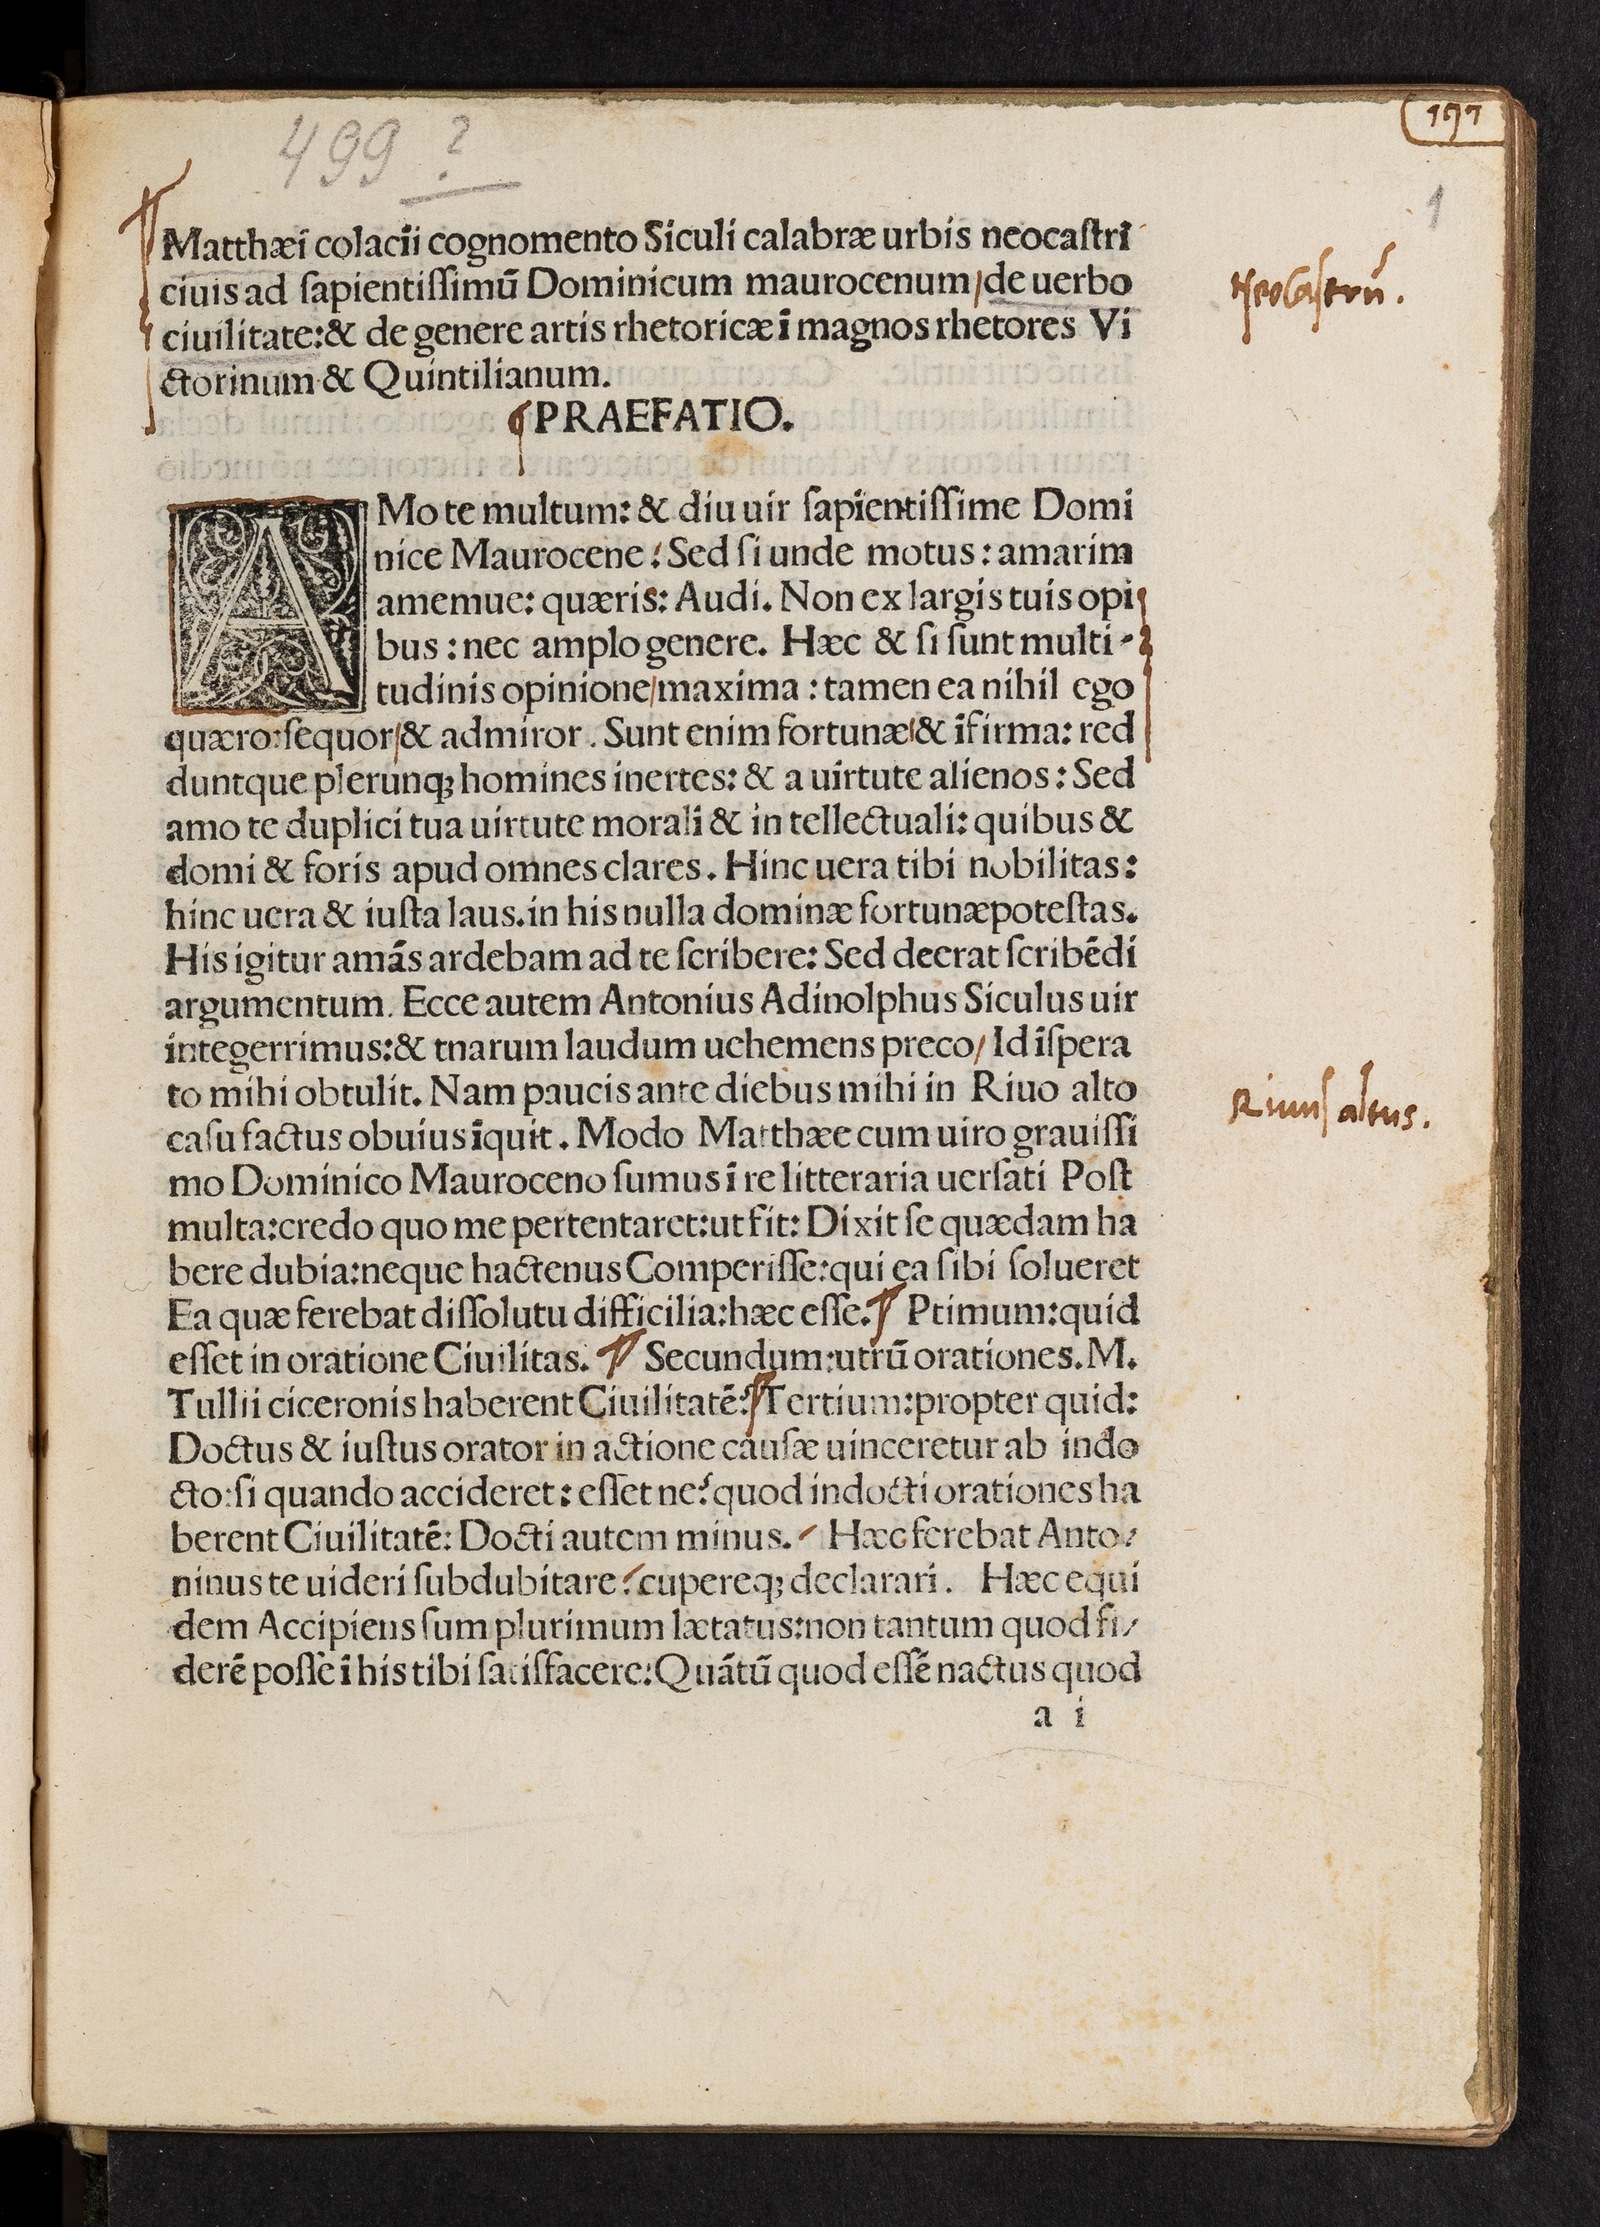 499 ?
1
Matthæi colacii cognomento Siculi calabræ urbis neocaſtri
ciuis ad ſapientiſſimũ Dominicum maurocenum/de uerbo
Neocaſtrũ.
ciuilitate:& de genere artis rhetoricæ ĩ magnos rhetores Vi
ctorinum & Quintilianum.
¶PRAEFATIO.
AMo te multum: & diu uir ſapientiſſime Domi
nice Maurocene: Sed ſi unde motus: amarim
amemue: quæris: Audi. Non ex largis tuis opi
bus: nec amplo genere. Hæc & ſi ſunt multi-
tudinis opinione/maxima: tamen ea nihil ego
quæro:ſequor/& admiror. Sunt enim fortunæ/& ĩfirma: red
duntque plerunq; homines inertes: & a uirtute alienos: Sed
amo te duplici tua uirtute morali & in tellectuali: quibus &
domi & foris apud omnes clares. Hinc uera tibi nobilitas:
hinc uera & iuſta laus. in his nulla dominæ fortunæpoteſtas.
His igitur amãs ardebam ad te ſcribere: Sed deerat ſcribẽdi
argumentum. Ecce autem Antonius Adinolphus Siculus uir
integerrimus:& tnarum laudum uehemens preco/ Id ĩſpera
to mihi obtulit. Nam paucis ante diebus mihi in Riuo alto
Riuuſ altus.
caſu factus obuius ĩquit. Modo Matthæe cum uiro grauiſſi
mo Dominico Mauroceno ſumus ĩ re litteraria uerſati Poſt
multa:credo quo me pertentaret:ut fit: Dixit ſe quædam ha
bere dubia:neque hactenus Comperiſſe:qui ea ſibi ſolueret
Ea quæ ferebat diſſolutu difficilia:hæc eſſe.¶ Ptimum:quid
eſſet in oratione Ciuilitas. ¶ Secundum:utrũ orationes. M.
Tullii ciceronis haberent Ciuilitatẽ?¶Tertium:propter quid:
Doctus & iuſtus orator in actione cauſæ uinceretur ab indo
cto:ſi quando accideret: eſſet ne?quod indocti orationes ha
berent Ciuilitatẽ: Docti autem minus./ Hæc ferebat Anto/
ninus te uideri ſubdubitare:cupereq; declarari. Hæc equi
dem Accipiens ſum plurimum lætatus:non tantum quod fi/
derẽ poſſe ĩ his tibi ſatiſfacere:Quãtũ quod eſſẽ nactus quod
a i